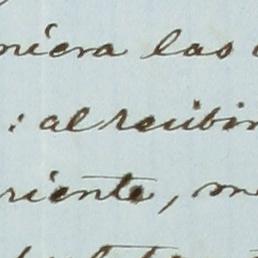 niera las
: al recibir
riente, me